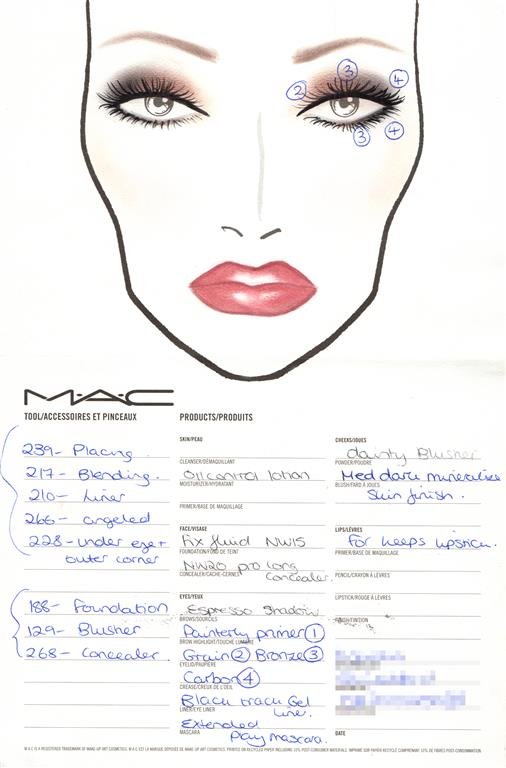 2
3
4
3
4
M·A·C
TOOL/ACCESSOIRES ET PINCEAUX
239- Placing.
217- Blending.
210- Liner
266- angeled
228- under eye +
outer corner
188- Foundation
129- Blusher
268- Concealer.
PRODUCTS/PRODUITS
SKIN/PEAU
CLEANSER/DÉMAQUILLANT
Oil control lotion
MOISTURIZER/HYDRATANT
PRIMER/BASE DE MAQUILLAGE
FACE/VISAGE
Fix fluid NW15
FOUNDATION/FOND DE TEINT
NW20 pro long
Concealer.
CONCEALER/CACHE-CERNES
EYES/YEUX
Espresso Shadow
BROWS/SOURCILS
Painterly primer 1
BROW HIGHLIGHT/TOUCHE LUMIÈRE
Grain 2 Bronze 3
EYELID/PAUPIÈRE
Carbon 4
CREASE/CREUX DE L'OEIL
Black track Gel
Liner.
LINER/EYE LINER
Extended
Play mascara.
MASCARA
CHEEKS/JOUES
dainty Blusher
POWDER/POUDRE
Med dark mineralise
BLUSH/FARD À JOUES
Skin finish.
LIPS/LÈVRES
For keeps lipstick.
PRIMER/BASE DE MAQUILLAGE
PENCIL/CRAYON À LÈVRES
LIPSTICK/ROUGE À LÈVRES
DATE
M·A·C IS A REGISTERED TRADEMARK OF MAKE-UP ART COSMETICS. M·A·C EST LA MARQUE DÉPOSÉE DE MAKE-UP ART COSMETICS. PRINTED ON RECYCLED PAPER INCLUDING 10% POST-CONSUMER MATERIALS. IMPRIMÉ SUR PAPIER RECYCLÉ COMPRENANT 10% DE FIBRES POST-CONSOMMATION.